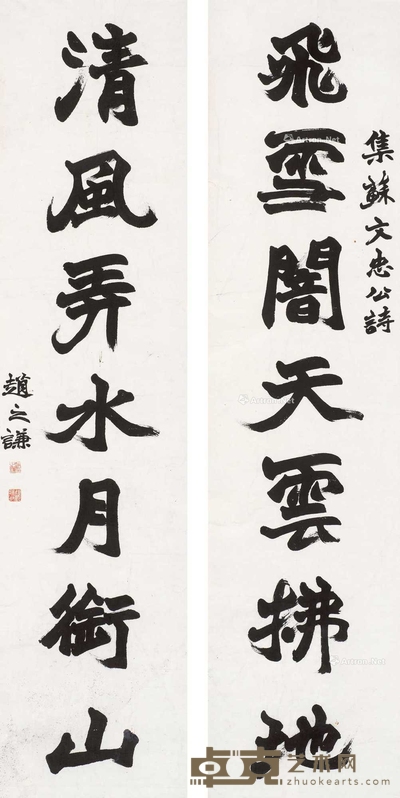 飛雪闇天雲拂地
集蘇文忠公詩
清風弄水月銜山
趙之謙
卓克艺术网
zhuokearts.com
Artron.Net